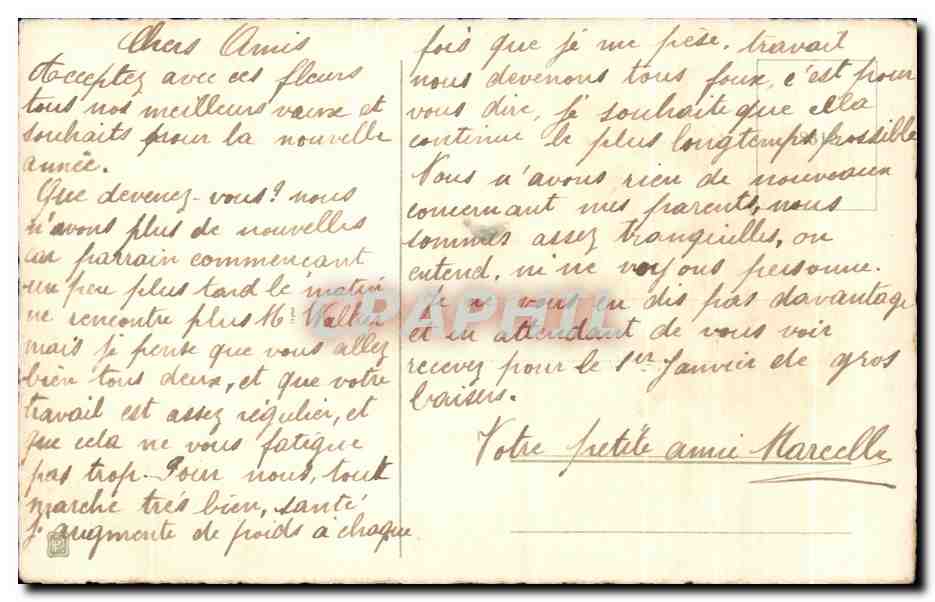 Chers Amis
Acceptez avec ces fleurs
tous nos meilleurs vœux et
souhaits pour la nouvelle
année.
Que devenez-vous? nous
n'avons plus de nouvelles
car parrain commencant
un peu plus tard le matin
ne rencontre plus Mr Walker
mais je pense que vous allez
bien tous deux, et que votre
travail est assez régulier, et
que cela ne vous fatigue
pas trop. Pour nous, tout
marche très bien, santé
j'augmente de poids à chaque
fois que je me pèse, travail
nous devenons tous foux, c'est pour
vous dire, je souhaite que cela
continue le plus longtemps possible
Nous n'avons rien de nouveaux
concernant mes parents, nous
sommes assez tranquilles, on
entend, ni ne voyons personne.
Je ne vous en dis pas davantage
et en attendant de vous voir
recevez pour le 1er Janvier de gros
baisers.
Votre petite amie Marcelle
CPAPHIL